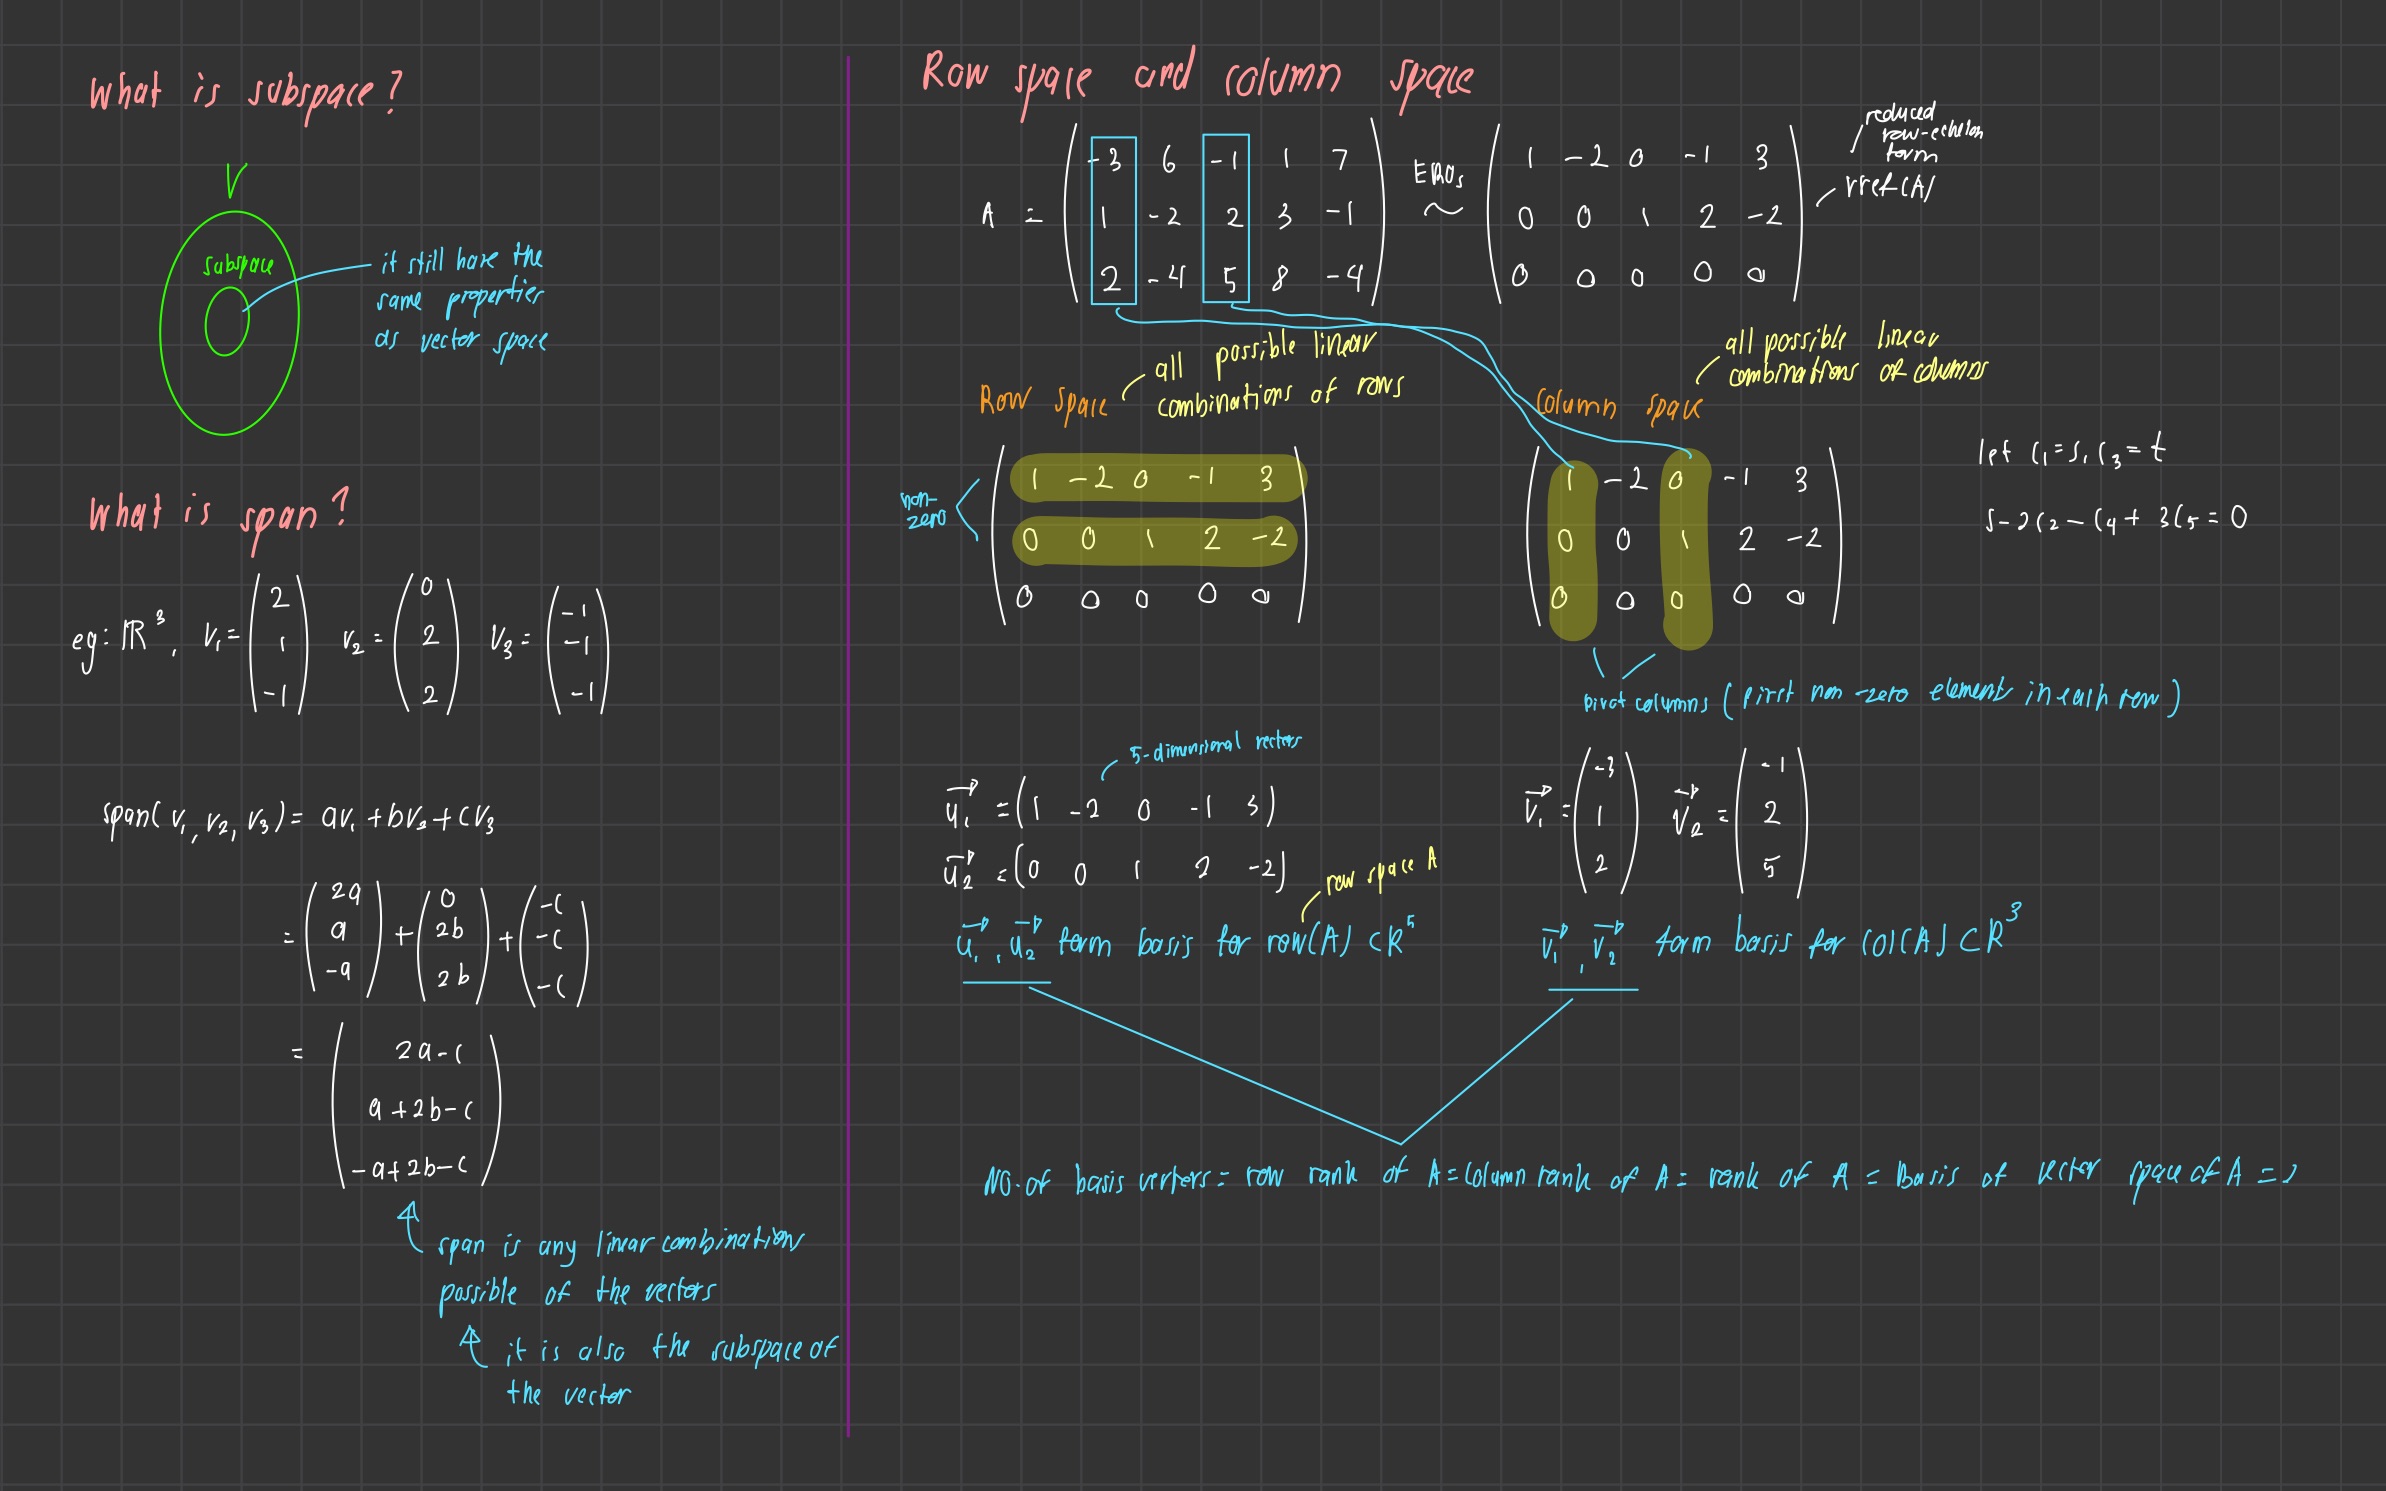 What is subspace?
V
subspace
it still have the
same properties
as vector space
What is span?
eg: ℝ³, v₁ = (2 1 -1) v₂ = (0 2 2) v₃ = (-1 -1 -1)
span(v₁, v₂, v₃) = av₁ + bv₂ + cv₃
= (2a a -a) + (0 2b 2b) + (-c -c -c)
= (2a-c
a+2b-c
-a+2b-c)
span is any linear combinations
possible of the vectors
it is also the subspace of
the vector
Row space and column space
reduced
row-echelon
form
rref(A)
A = EROs ~
-3 6 -1 1 7
1 -2 2 3 -1
2 -4 5 8 -4
1 -2 0 -1 3
0 0 1 2 -2
0 0 0 0 0
Row space
all possible linear
combinations of rows
non-
zero
1 -2 0 -1 3
0 0 1 2 -2
0 0 0 0 0
Column space
all possible linear
combinations of columns
1 -2 0 -1 3
0 0 1 2 -2
0 0 0 0 0
let c₁ = s, c₃ = t
s - 2c₂ - c₄ + 3c₅ = 0
pivot columns (first non-zero element in each row)
5-dimensional vectors
u₁ = (1 -2 0 -1 3)
u₂ = (0 0 1 2 -2)
row space A
u₁, u₂ form basis for row(A) ⊂ R⁵
v₁ = (-3 1 2) v₂ = (-1 2 5)
v₁, v₂ form basis for col(A) ⊂ R³
NO. of basis vectors = row rank of A = column rank of A = rank of A = Basis of vector space of A = 2